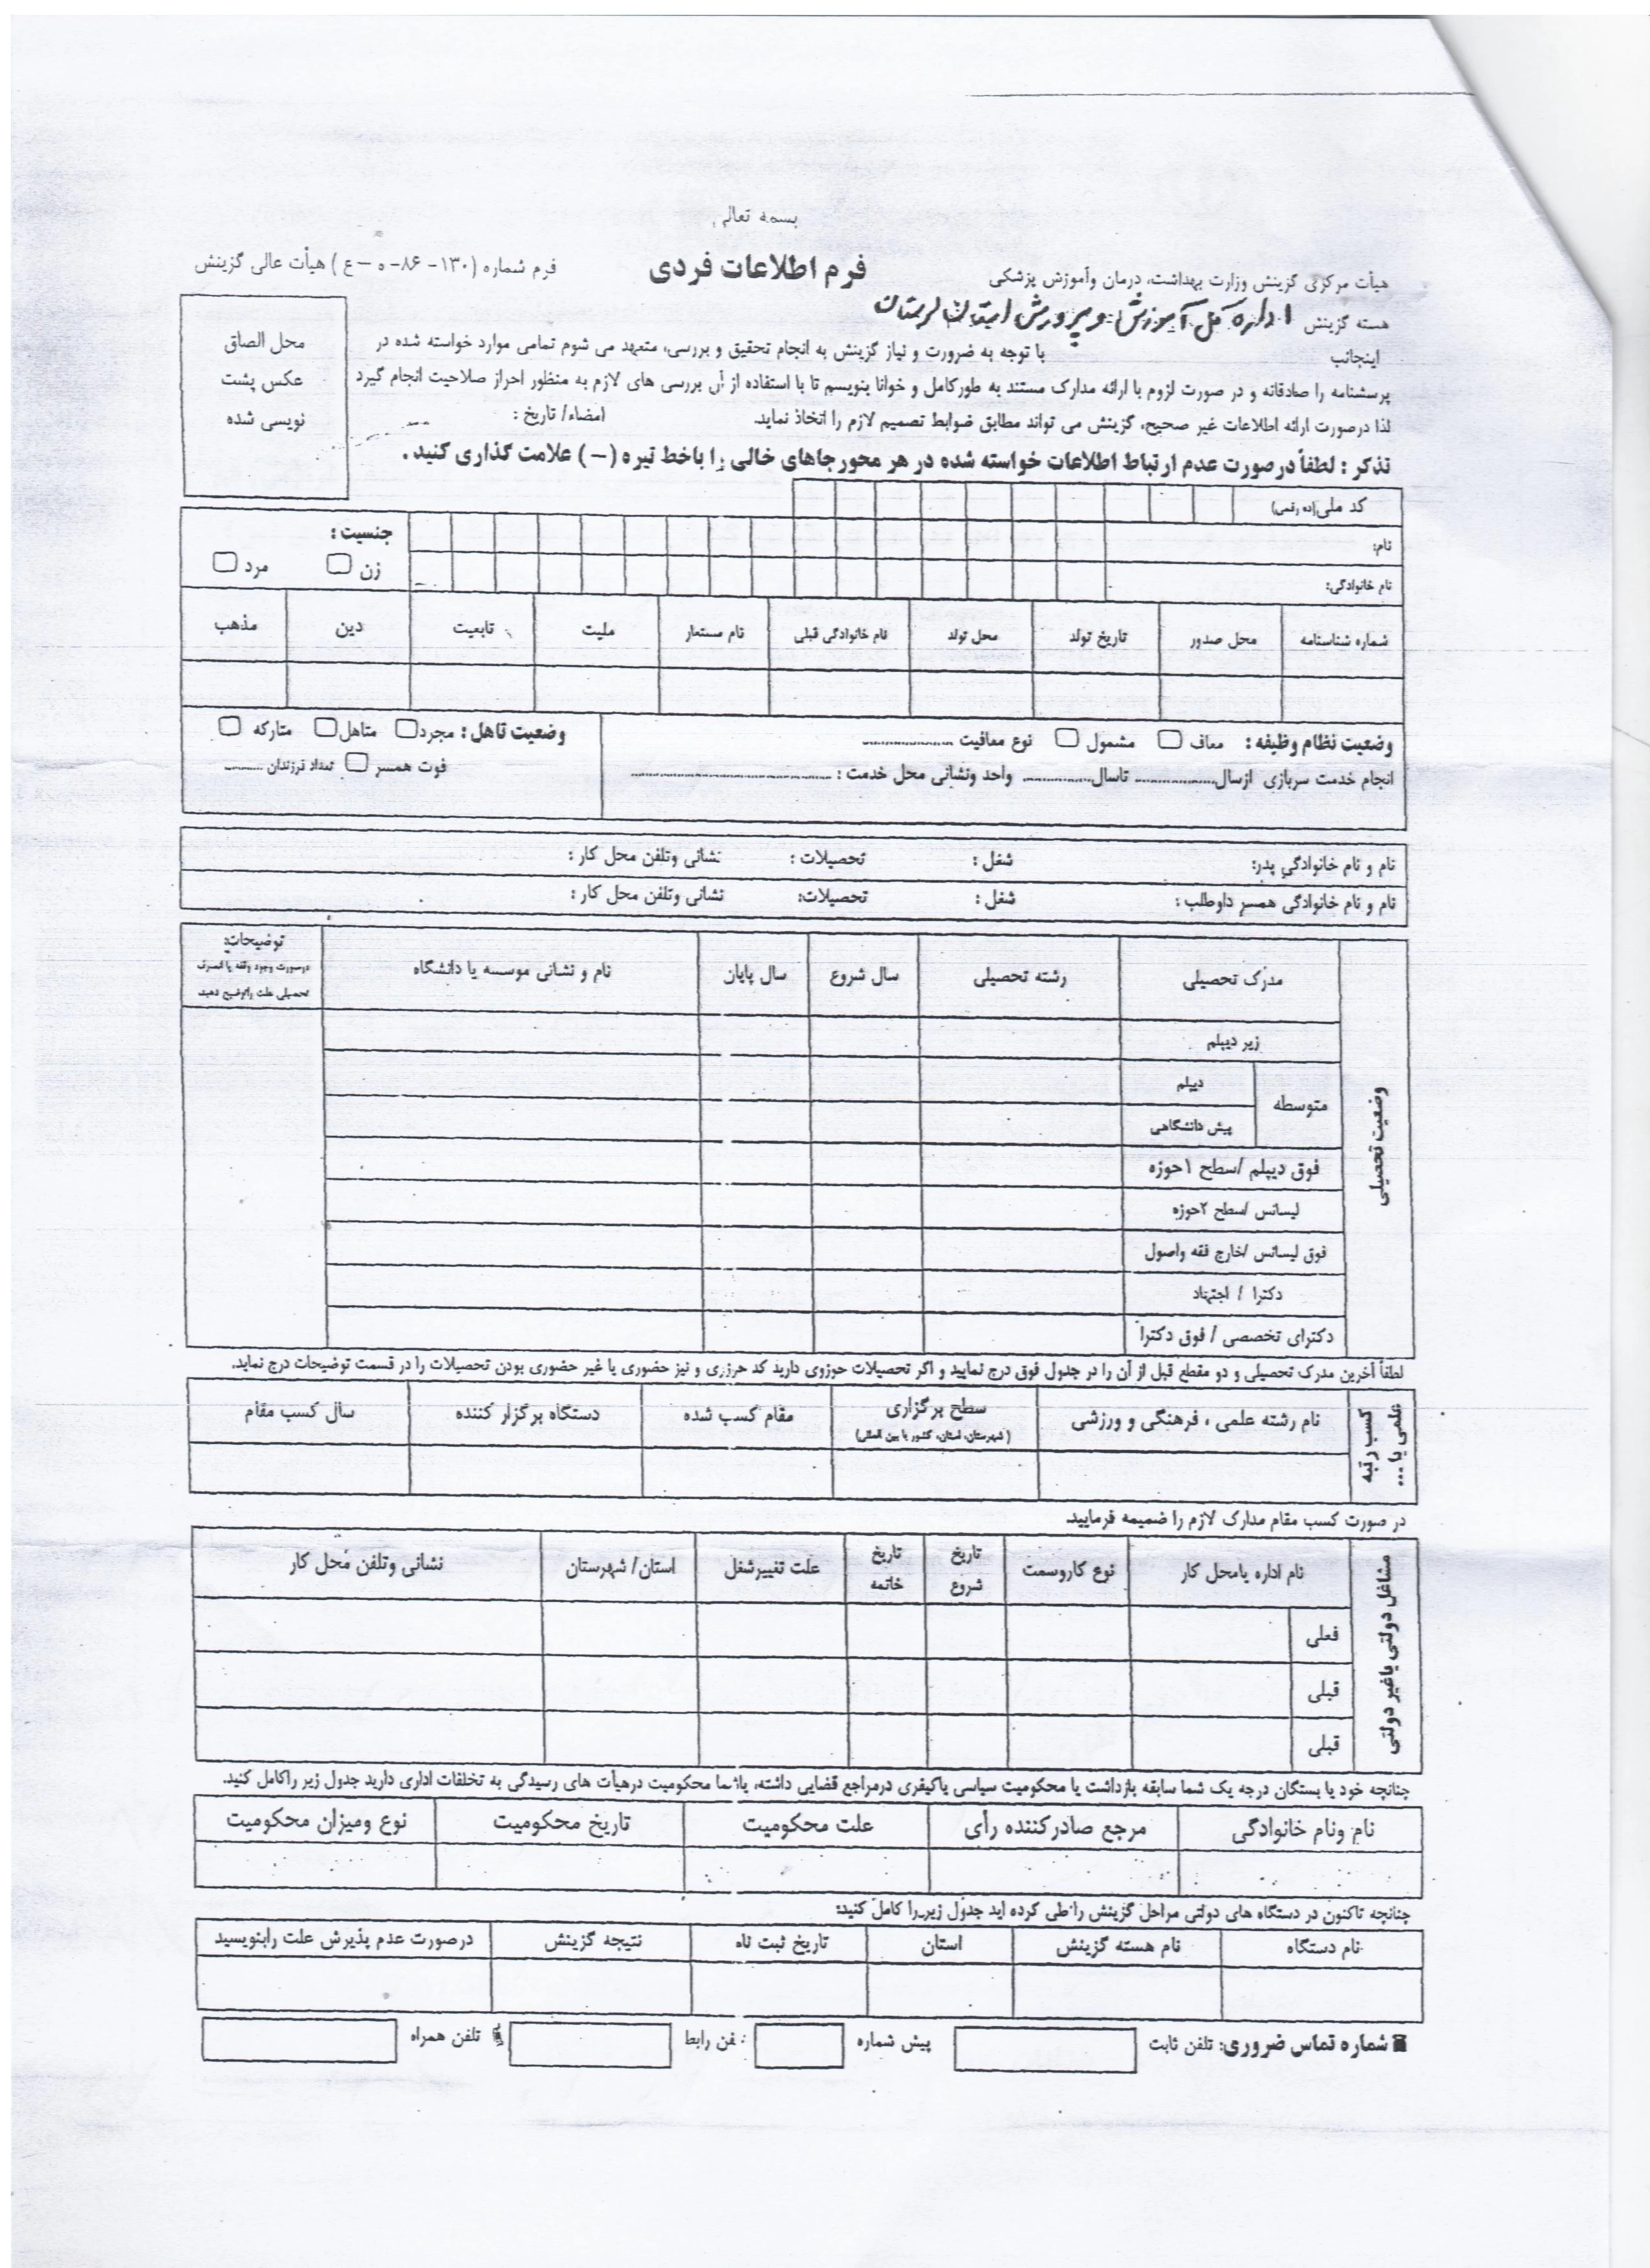 بسمه تعالی
هیأت مرکزی گزینش وزارت بهداشت، درمان وآموزش پزشکی
فرم اطلاعات فردی
فرم شماره (۱۳۰- ۸۶- ه - ع) هیأت عالی گزینش
هسته گزینش اداره کل آموزش و پرورش استان لرستان
اینجانب با توجه به ضرورت و نیاز گزینش به انجام تحقیق و بررسی، متعهد می شوم تمامی موارد خواسته شده در
پرسشنامه را صادقانه و در صورت لزوم با ارائه مدارک مستند به طورکامل و خوانا بنویسم تا با استفاده از آن بررسی های لازم به منظور احراز صلاحیت انجام گیرد
لذا درصورت ارائه اطلاعات غیر صحیح، گزینش می تواند مطابق ضوابط تصمیم لازم را اتخاذ نماید. امضاء/ تاریخ :
محل الصاق
عکس پشت
نویسی شده
تذکر : لطفاً درصورت عدم ارتباط اطلاعات خواسته شده در هر محور جاهای خالی را باخط تیره (–) علامت گذاری کنید .
کد ملی(ده رقمی)
نام:
نام خانوادگی:
جنسیت :
زن مرد
شماره شناسنامه محل صدور تاریخ تولد محل تولد نام خانوادگی قبلی نام مستعار ملیت تابعیت دین مذهب
وضعیت نظام وظیفه : معاف مشمول نوع معافیت ....................
انجام خدمت سربازی ازسال.................. تاسال............... واحد ونشانی محل خدمت : .............................................
وضعیت تاهل : مجرد متاهل متارکه
فوت همسر تعداد فرزندان .........
نام و نام خانوادگی پدر: شغل : تحصیلات : نشانی وتلفن محل کار :
نام و نام خانوادگی همسر داوطلب : شغل : تحصیلات: نشانی وتلفن محل کار :
وضعیت تحصیلی
مدرک تحصیلی رشته تحصیلی سال شروع سال پایان نام و نشانی موسسه یا دانشگاه
توضیحات:
درصورت وجود وقفه یا انصراف
تحصیلی علت راتوضیح دهید
زیر دیپلم
متوسطه
دیپلم
پیش دانشگاهی
فوق دیپلم /سطح ۱حوزه
لیسانس /سطح ۲حوزه
فوق لیسانس /خارج فقه واصول
دکترا / اجتهاد
دکترای تخصصی / فوق دکترا
لطفاً آخرین مدرک تحصیلی و دو مقطع قبل از آن را در جدول فوق درج نمایید و اگر تحصیلات حوزوی دارید کد حوزوی و نیز حضوری یا غیر حضوری بودن تحصیلات را در قسمت توضیحات درج نماید.
کسب رتبه
علمی یا ...
نام رشته علمی ، فرهنگی و ورزشی سطح برگزاری مقام کسب شده دستگاه برگزار کننده سال کسب مقام
(شهرستان، استان، کشور یا بین المللی)
در صورت کسب مقام مدارک لازم را ضمیمه فرمایید.
مشاغل دولتی یاغیر دولتی
نام اداره یامحل کار نوع کاروسمت تاریخ شروع تاریخ خاتمه علت تغییرشغل استان/ شهرستان نشانی وتلفن محل کار
فعلی
قبلی
قبلی
چنانچه خود یا بستگان درجه یک شما سابقه بازداشت یا محکومیت سیاسی یاکیفری درمراجع قضایی داشته، یاشما محکومیت درهیأت های رسیدگی به تخلفات اداری دارید جدول زیر راکامل کنید.
نام ونام خانوادگی مرجع صادرکننده رأی علت محکومیت تاریخ محکومیت نوع ومیزان محکومیت
چنانچه تاکنون در دستگاه های دولتی مراحل گزینش را طی کرده اید جدول زیر را کامل کنید:
نام دستگاه نام هسته گزینش استان تاریخ ثبت نام نتیجه گزینش درصورت عدم پذیرش علت رابنویسید
شماره تماس ضروری: تلفن ثابت پیش شماره تلفن رابط تلفن همراه